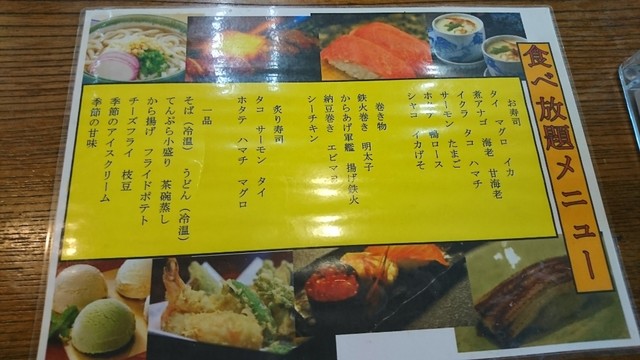 食べ放題メニュー
お寿司
タイ　マグロ　イカ
煮アナゴ　海老　甘海老
イクラ　タコ　ハマチ
サーモン　たまご
鴨ロース
シャコ　イカげそ
巻き物
鉄火巻き　明太子
からあげ軍艦　揚げ鉄火
納豆巻き　エビマヨ
シーチキン
炙り寿司
タコ　サーモン　タイ
ホタテ　ハマチ　マグロ
一品
そば（冷温）　うどん（冷温）
てんぷら小盛り　茶碗蒸し
から揚げ　フライドポテト
チーズフライ　枝豆
季節のアイスクリーム
季節の甘味